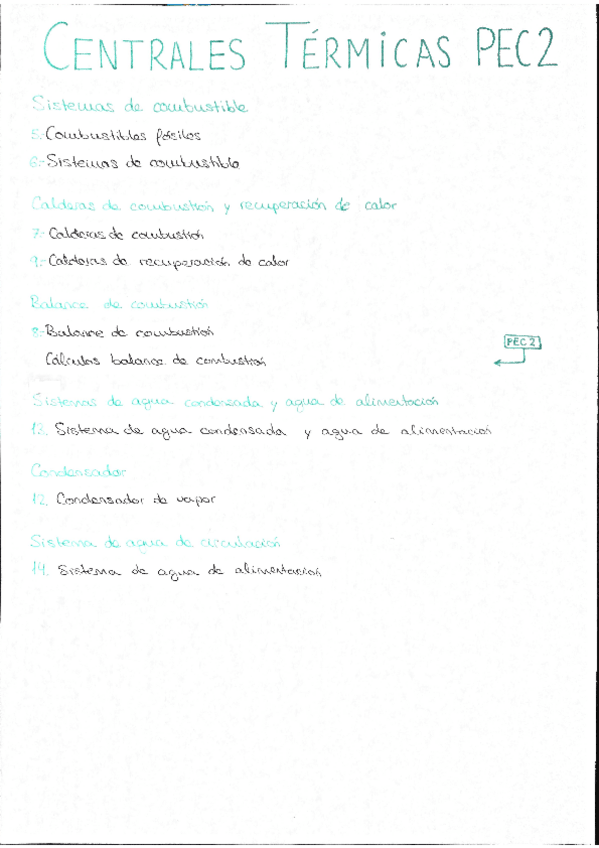 CENTRALES TÉRMICAS PEC2
Sistemas de combustible
5.- Combustibles fósiles
6.- Sistemas de combustible
Calderas de combustión y recuperación de calor
7.- Calderas de combustión
9.- Calderas de recuperación de calor
Balance de combustión
8.- Balance de combustión
Cálculos balance de combustión
PEC 2
Sistemas de agua condensada y agua de alimentación
13. Sistema de agua condensada y agua de alimentación
Condensador
12. Condensador de vapor
Sistema de agua de circulación
14. Sistema de agua de alimentación